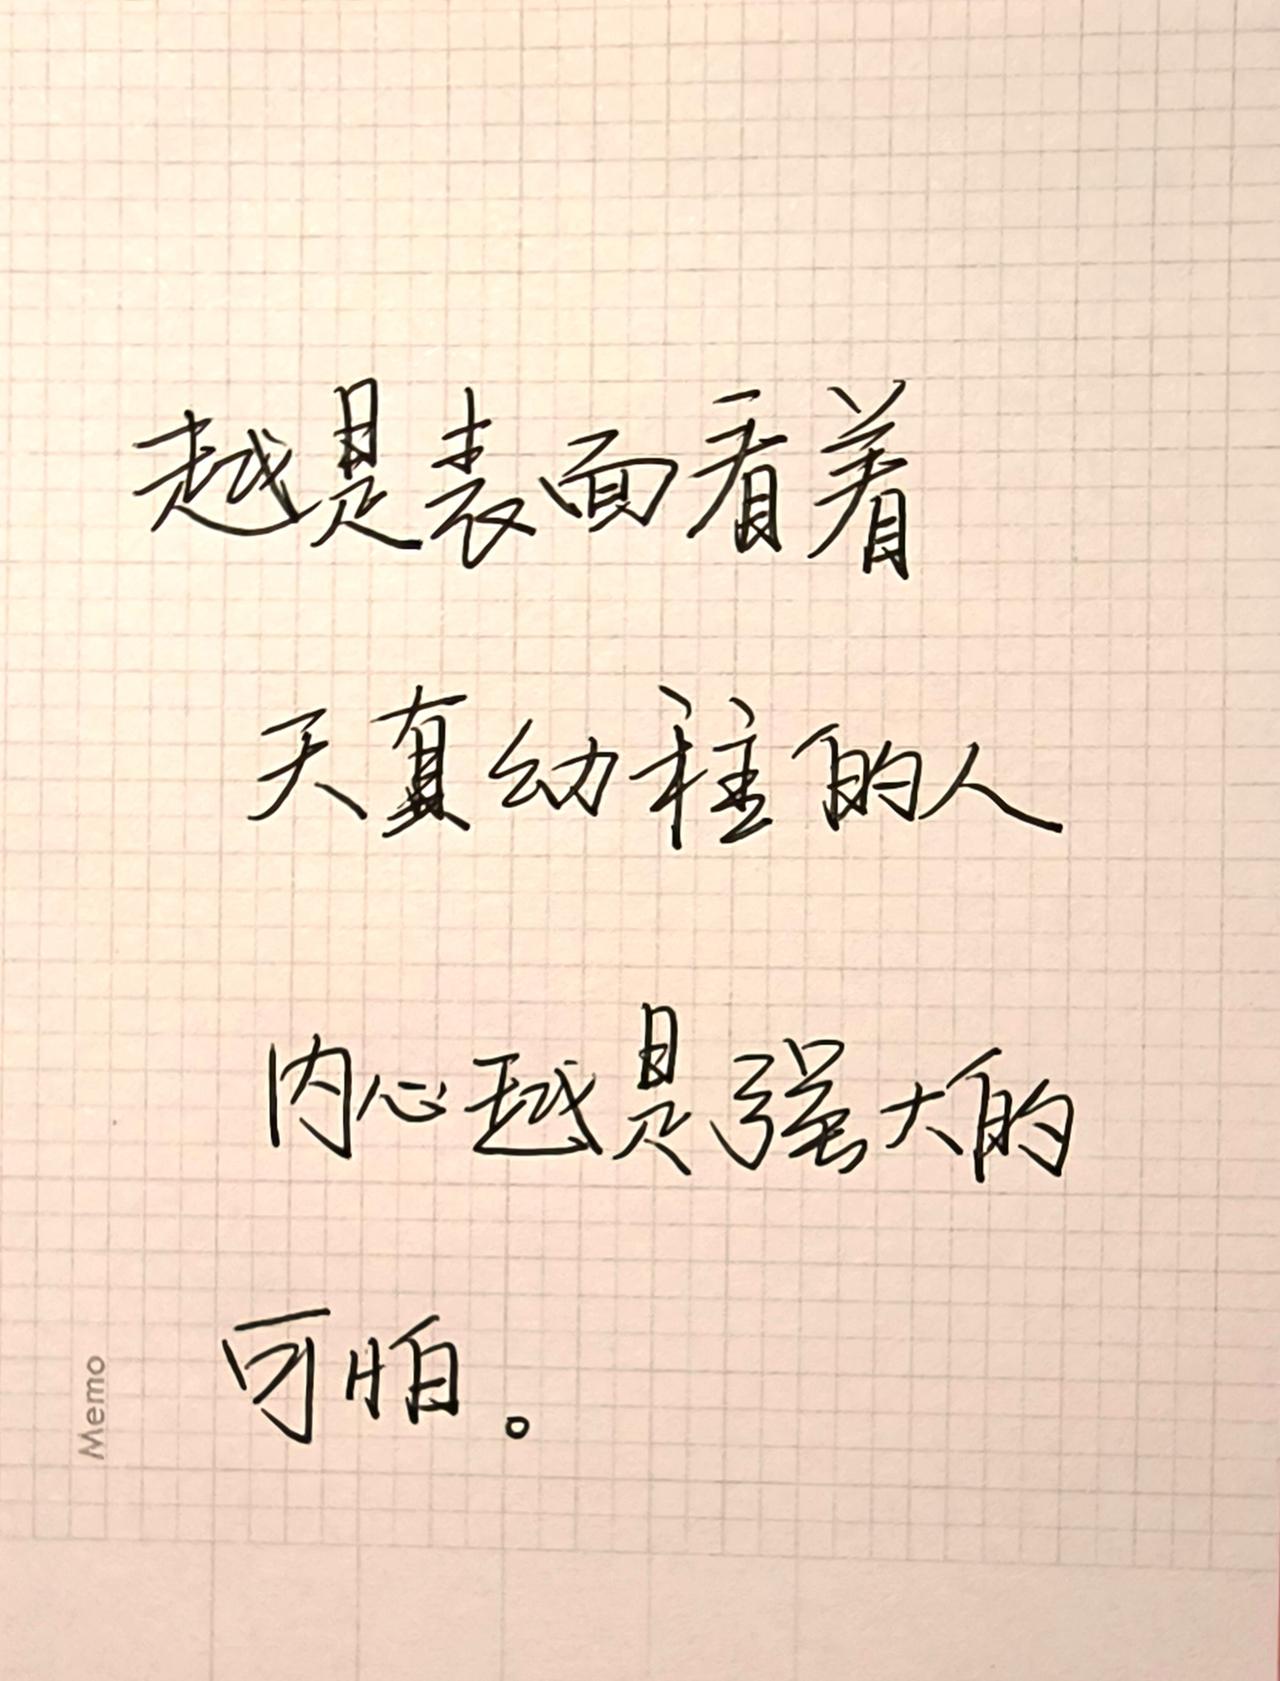 越是表面看着
天真幼稚的人
内心越是强大的
可怕。
Memo